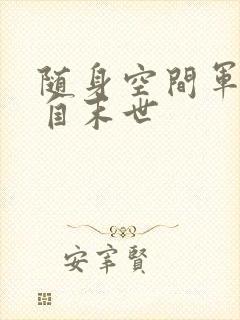 随身空間軍
自末世
安宰賢